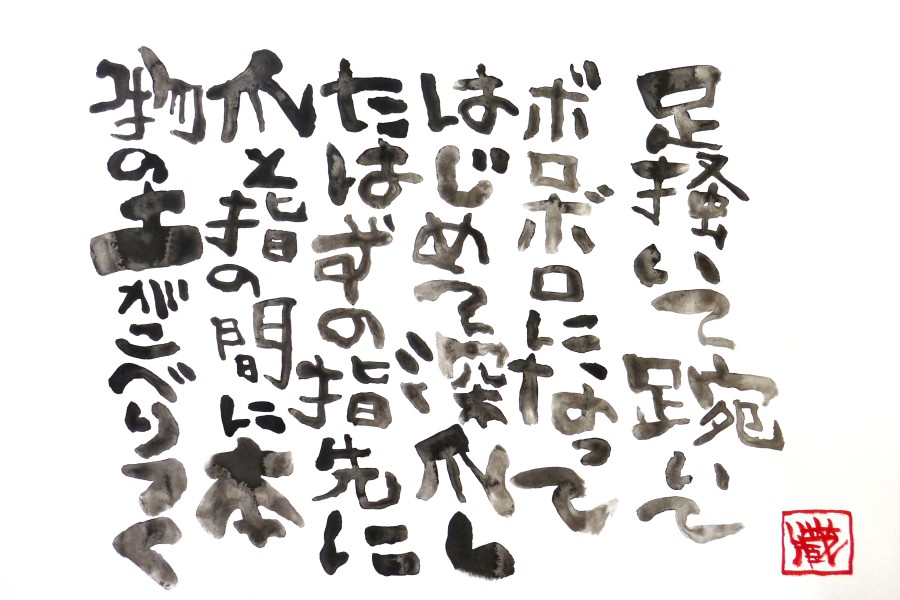 足掻いて踠いて
ボロボロになって
はじめて深爪し
たはずの指先に
爪と指の間に本
物の土がこべりつく